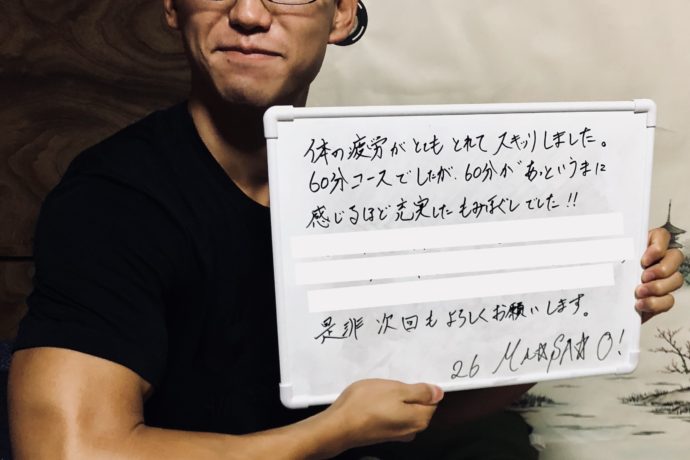 体の疲労がとてもとれてスッキリしました。
60分コースでしたが、60分があっというまに
感じるほど充実したもみほぐしでした!!
是非次回もよろしくお願いします。
26 MA☆SA☆O!